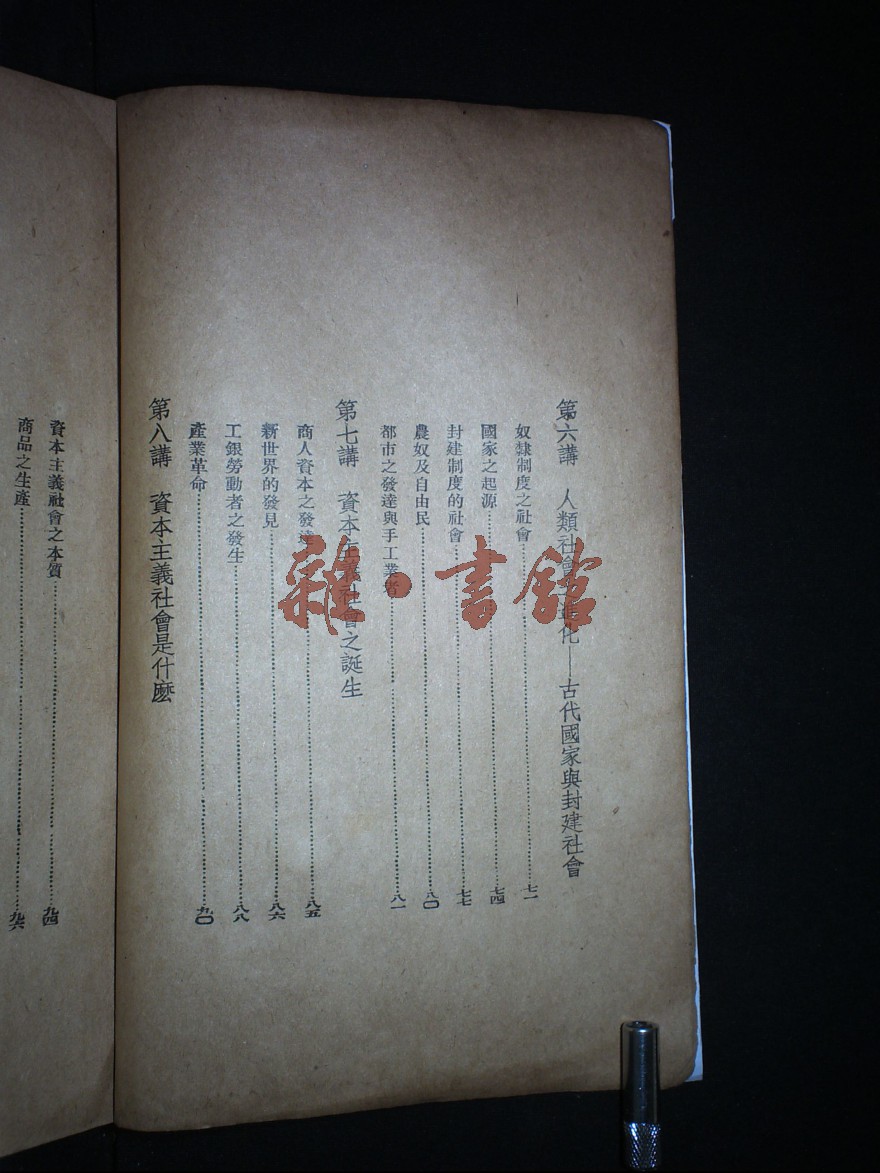 第六講　人類社會之進化——古代國家與封建社會
奴隸制度之社會……七一
國家之起源……七四
封建制度的社會……七七
農奴及自由民……八〇
都市之發達與手工業者……八一
第七講　資本主義社會之誕生
商人資本之發達……八五
新世界的發見……八六
工銀勞動者之發生……八八
產業革命……九〇
第八講　資本主義社會是什麼
資本主義社會之本質……九四
商品之生產……九六
雜·書館